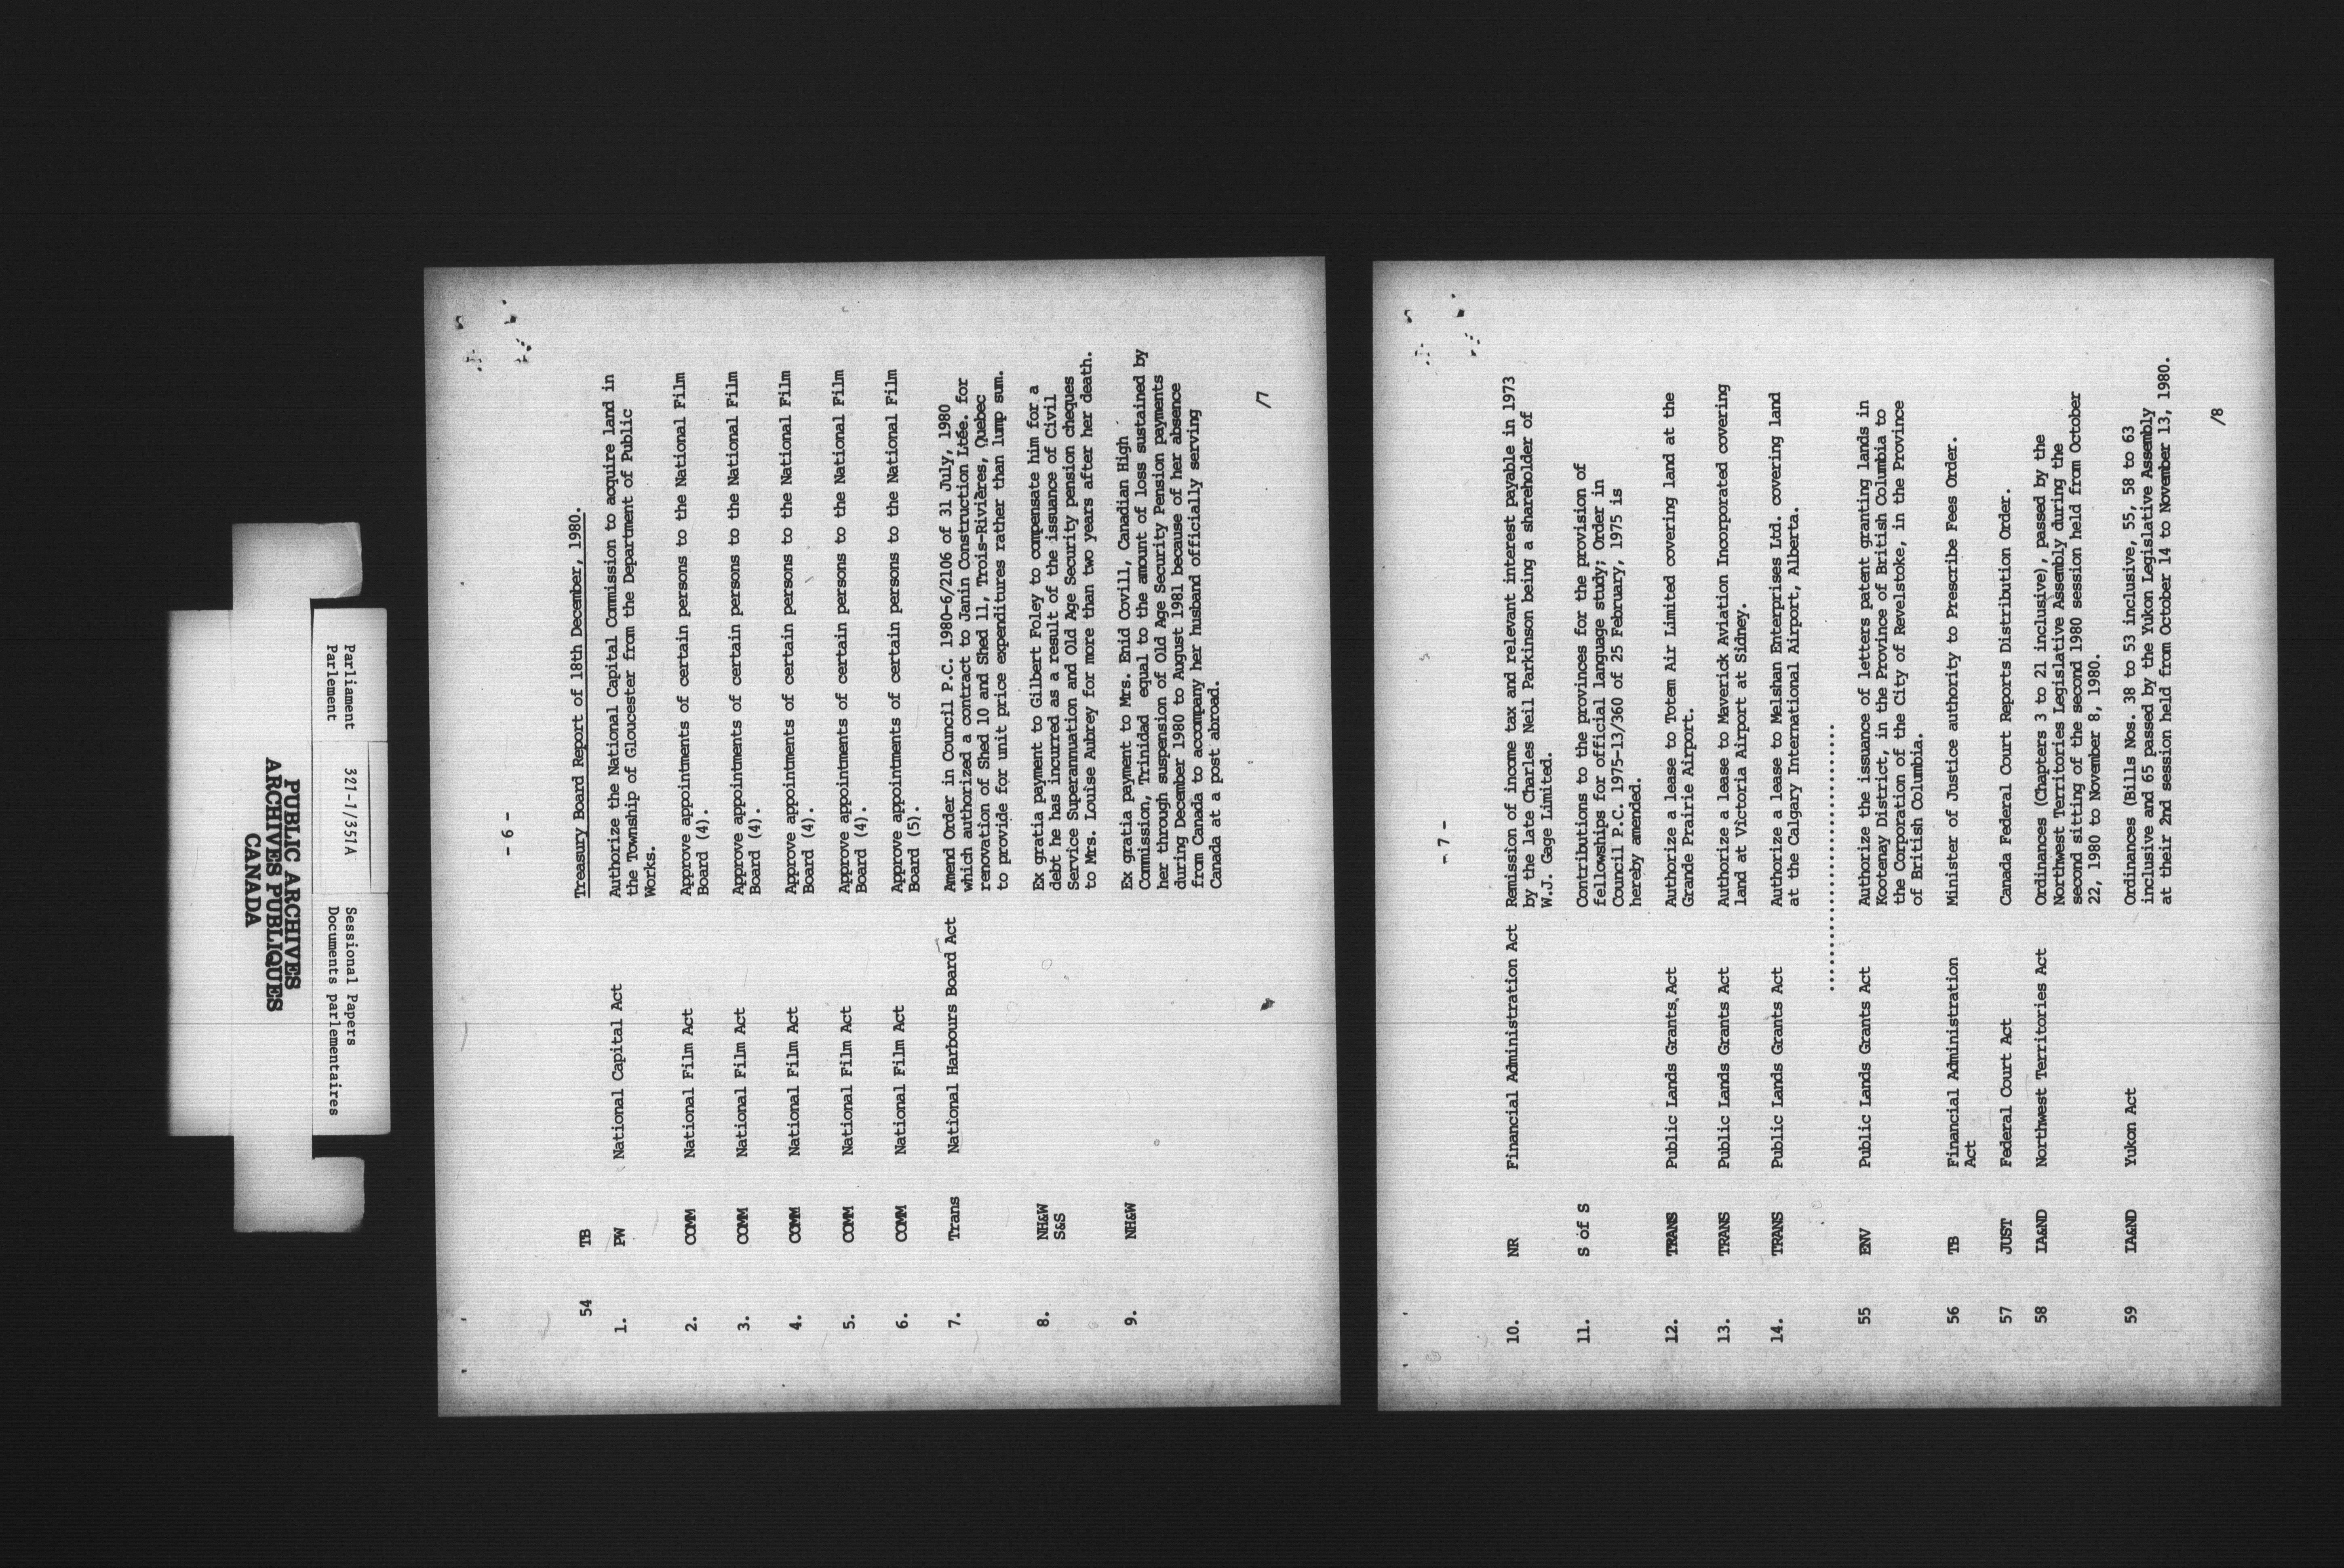 PUBLIC ARCHIVES
ARCHIVES PUBLIQUES
CANADA
Parliament
Parlement
321-1/351A
Sessional Papers
Documents parlementaires
- 6 -
54 TB Treasury Board Report of 18th December, 1980.
1. PW National Capital Act Authorize the National Capital Commission to acquire land in
the Township of Gloucester from the Department of Public
Works.
2. COMM National Film Act Approve appointments of certain persons to the National Film
Board (4).
3. COMM National Film Act Approve appointments of certain persons to the National Film
Board (4).
4. COMM National Film Act Approve appointments of certain persons to the National Film
Board (4).
5. COMM National Film Act Approve appointments of certain persons to the National Film
Board (4).
6. COMM National Film Act Approve appointments of certain persons to the National Film
Board (5).
7. Trans National Harbours Board Act Amend Order in Council P.C. 1980-6/2106 of 31 July, 1980
which authorized a contract to Janin Construction Ltée. for
renovation of Shed 10 and Shed 11, Trois-Rivières, Quebec
to provide for unit price expenditures rather than lump sum.
8. NH&W Ex gratia payment to Gilbert Foley to compensate him for a
S&S debt he has incurred as a result of the issuance of Civil
Service Superannuation and Old Age Security pension cheques
to Mrs. Louise Aubrey for more than two years after her death.
9. NH&W Ex gratia payment to Mrs. Enid Covill, Canadian High
Commission, Trinidad equal to the amount of loss sustained by
her through suspension of Old Age Security Pension payments
during December 1980 to August 1981 because of her absence
from Canada to accompany her husband officially serving
Canada at a post abroad.
/7
- 7 -
10. NR Financial Administration Act Remission of income tax and relevant interest payable in 1973
by the late Charles Neil Parkinson being a shareholder of
W.J. Gage Limited.
11. S of S Contributions to the provinces for the provision of
fellowships for official language study; Order in
Council P.C. 1975-13/360 of 25 February, 1975 is
hereby amended.
12. TRANS Public Lands Grants Act Authorize a lease to Totem Air Limited covering land at the
Grande Prairie Airport.
13. TRANS Public Lands Grants Act Authorize a lease to Maverick Aviation Incorporated covering
land at Victoria Airport at Sidney.
14. TRANS Public Lands Grants Act Authorize a lease to Melshan Enterprises Ltd. covering land
at the Calgary International Airport, Alberta.
..............................
55 ENV Public Lands Grants Act Authorize the issuance of letters patent granting lands in
Kootenay District, in the Province of British Columbia to
the Corporation of the City of Revelstoke, in the Province
of British Columbia.
56 TB Financial Administration Minister of Justice authority to Prescribe Fees Order.
Act
57 JUST Federal Court Act Canada Federal Court Reports Distribution Order.
58 IA&ND Northwest Territories Act Ordinances (Chapters 3 to 21 inclusive), passed by the
Northwest Territories Legislative Assembly during the
second sitting of the second 1980 session held from October
22, 1980 to November 8, 1980.
59 IA&ND Yukon Act Ordinances (Bills Nos. 38 to 53 inclusive, 55, 58 to 63
inclusive and 65 passed by the Yukon Legislative Assembly
at their 2nd session held from October 14 to November 13, 1980.
/8